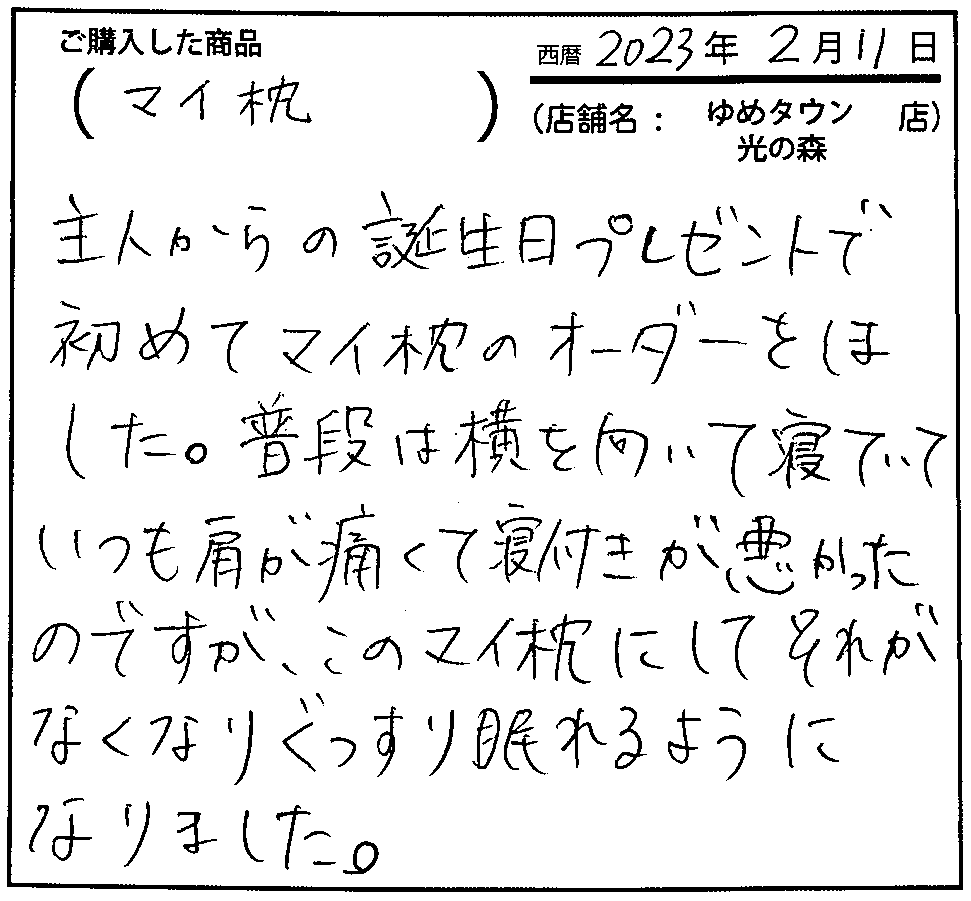 ご購入した商品
(マイ枕)
西暦 2023年 2月11日
(店舗名: ゆめタウン 店)
光の森
主人からの誕生日プレゼントで
初めてマイ枕のオーダーをしま
した。普段は横を向いて寝ていて
いつも肩が痛くて寝付きが悪かった
のですが、このマイ枕にしてそれが
なくなりぐっすり眠れるように
なりました。